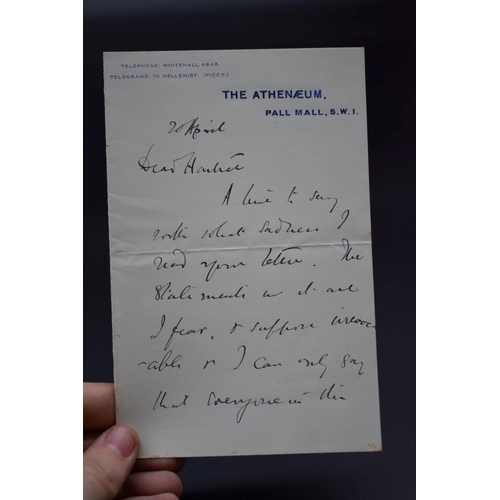 TELEPHONE: WHITEHALL 4843.
TELEGRAMS: "HELLENIST, (PICCY.)
THE ATHENÆUM,
PALL MALL, S.W.1.
20 April
Dear
A line to say
with what sadness I
read your letter. The
statements in it are
I fear, & suppose irrevoc-
-able & I can only say
that everyone in this